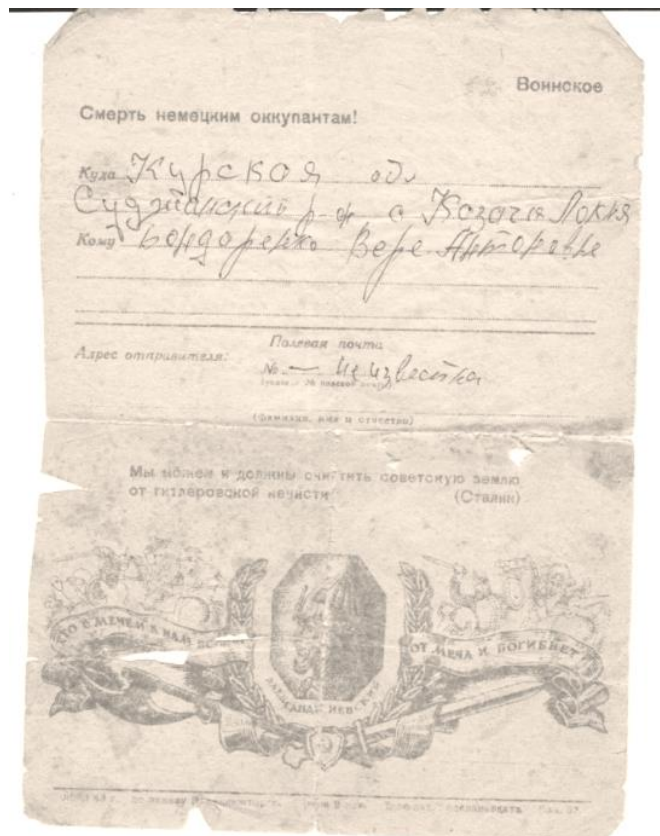 Воинское
Смерть немецким оккупантам!
Куда Курская обл
Суджанский р-н, с Козачья Локня
Кому Бондаренко Вере Антоновне
Адрес отправителя:
Полевая почта
№ — Неизвестна
(фамилия, имя и отчество)
Мы можем и должны очистить советскую землю
от гитлеровской нечисти (Сталин)
КТО С МЕЧЕМ К НАМ
ОТ МЕЧА И ПОГИБНЕТ
АЛЕКСАНДР НЕВСКИЙ